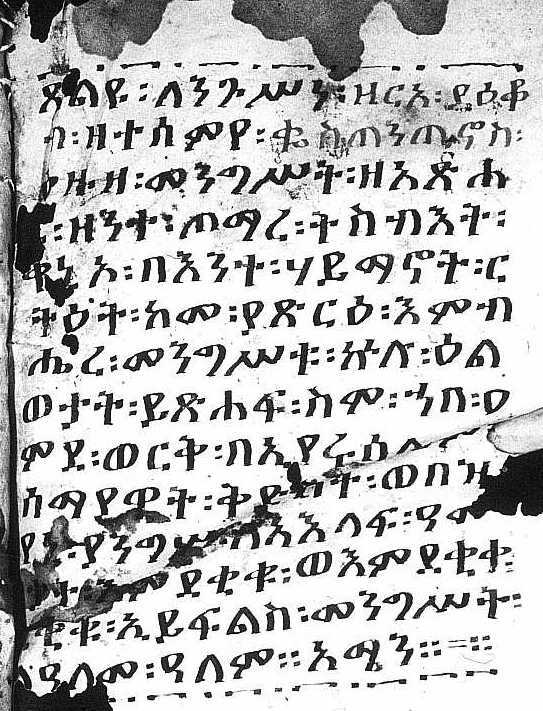 ጸልዩ፡ለንጉሥነ፡ዘርአ፡ያዕቆ
ብ፡ዘተሰምየ፡ቈስጠንጢኖስ፡
መንግሥት፡ዘአጽሐ
ዘንተ፡ጦማረ፡ትስብእት፡
በእንተ፡ሃይማኖት፡ር
ትዕት፡ከመ፡ያጽርዕ፡እምብ
ሔረ፡መንግሥቱ፡ኵሉ፡ዕል
ወታት፡ይጽሐፍ፡ስም፡ኀበ፡ዐ
ምደ፡ወርቅ፡በኢየሩሳሌም
ሰማያዊት፡ቅድስት፡ወበዝ
ያንግሥ፡ለአእላፍ፡ዓመ
ታት፡እምደቂቁ፡ወእምደቂቀ፡
ደቂቁ፡ኢይፍልስ፡መንግሥት፡
ለዓለመ፡ዓለም፡፡አሜን፡፡